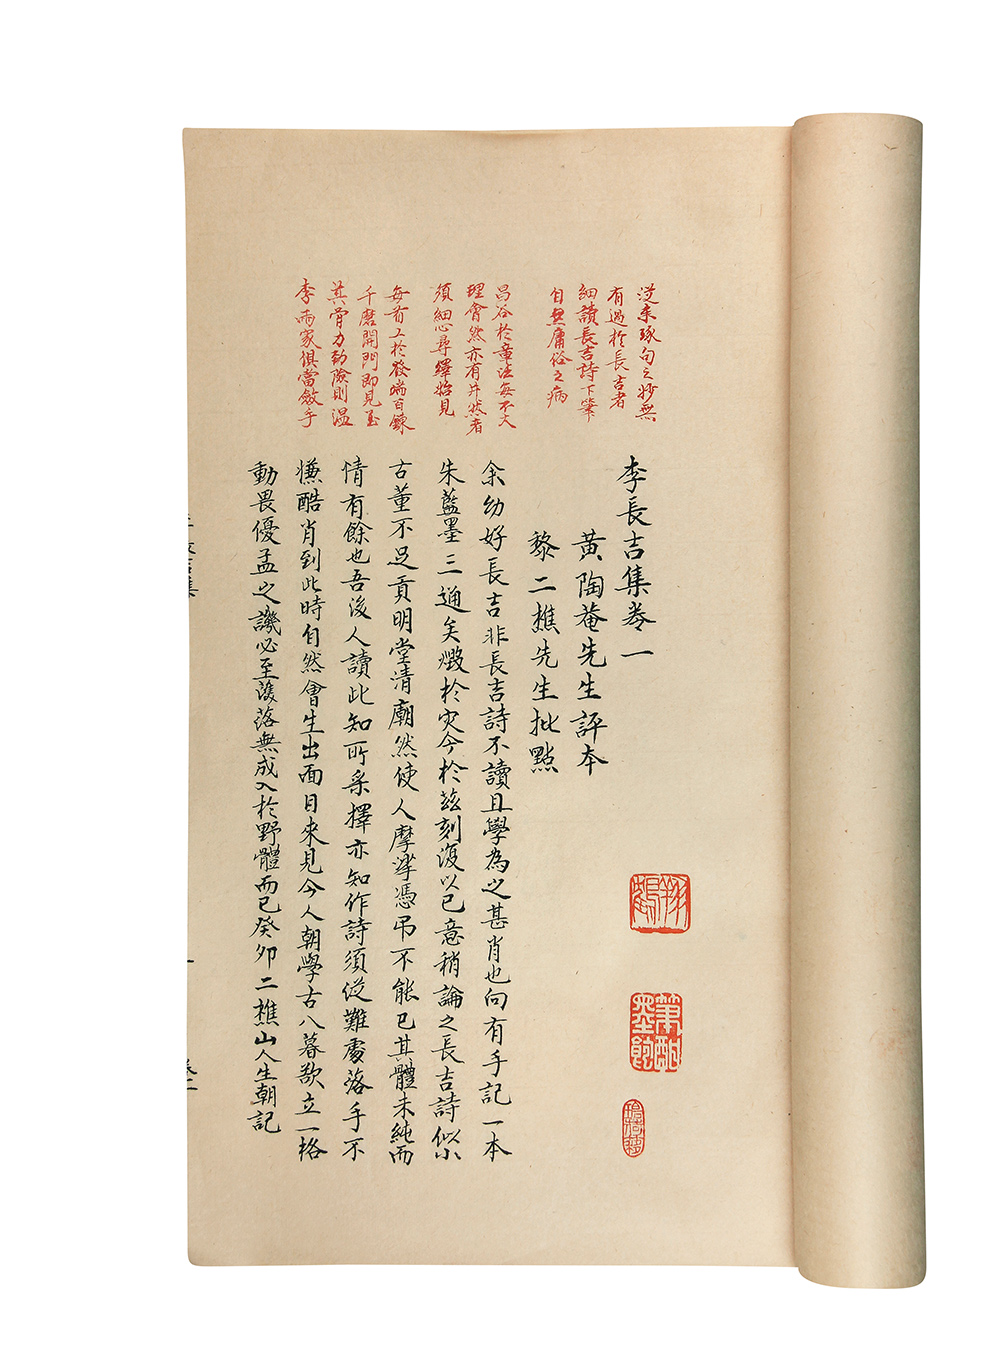 從來琢句之妙無
有過於長吉者
細讀長吉詩下筆
自無庸俗之病
昌谷於章法每不大
理會然亦有井然者
須細心尋繹始見
每首工於發端百鍊
千磨開門即見至
其骨力勁險則溫
李兩家俱當斂手
李長吉集卷一
黃陶菴先生評本
黎二樵先生批點
余幼好長吉非長吉詩不讀且學為之甚肖也向有手記一本
朱藍墨三通矣燬於灾今於茲刻復以已意稍論之長吉詩似小
古董不足貢明堂清廟然使人摩挲憑弔不能已其體未純而
情有餘也吾後人讀此知所采擇亦知作詩須從難處落手不
慊酷肖到此時自然會生出面目來見今人朝學古人暮欲立一格
動畏優孟之譏必至濩落無成入於野體而已癸卯二樵山人生朝記
翔鶴
筆酣
墨飽